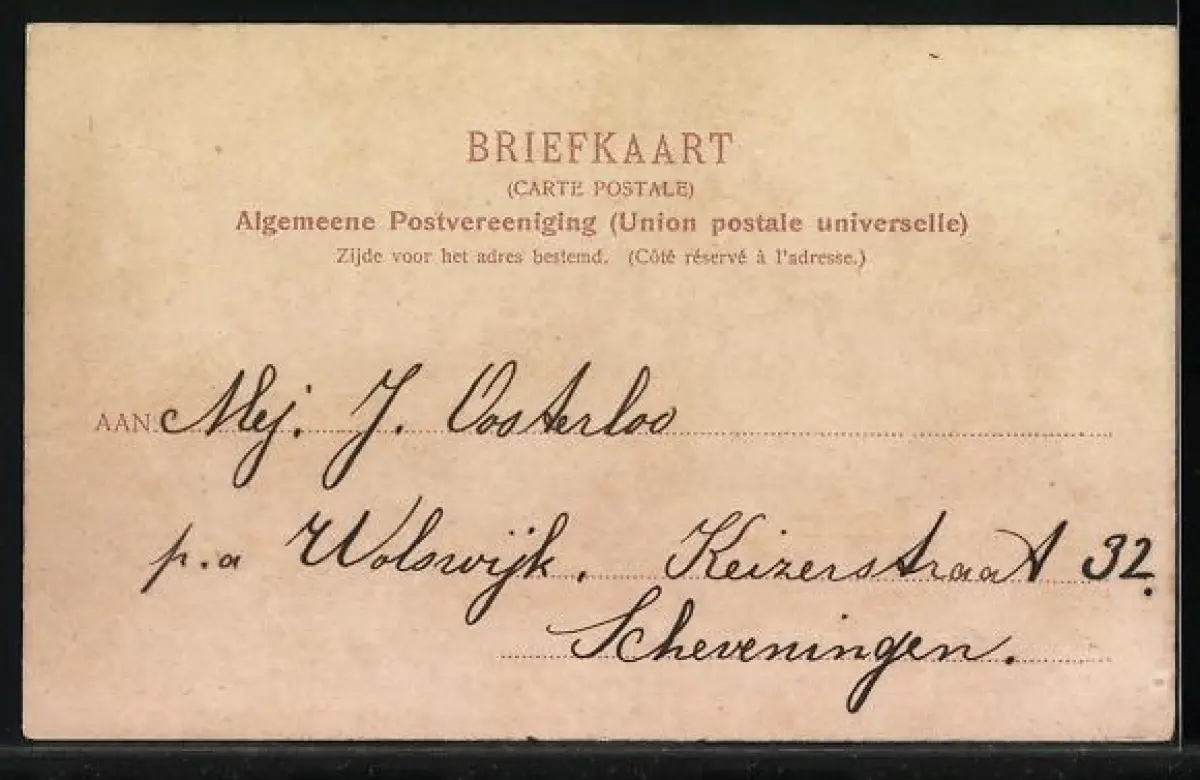 BRIEFKAART
(CARTE POSTALE)
Algemeene Postvereeniging (Union postale universelle)
Zijde voor het adres bestemd. (Côté réservé à l'adresse.)
AAN Mej. J. Oosterloo
p.a Wolswijk. Keizerstraat 32.
Scheveningen.